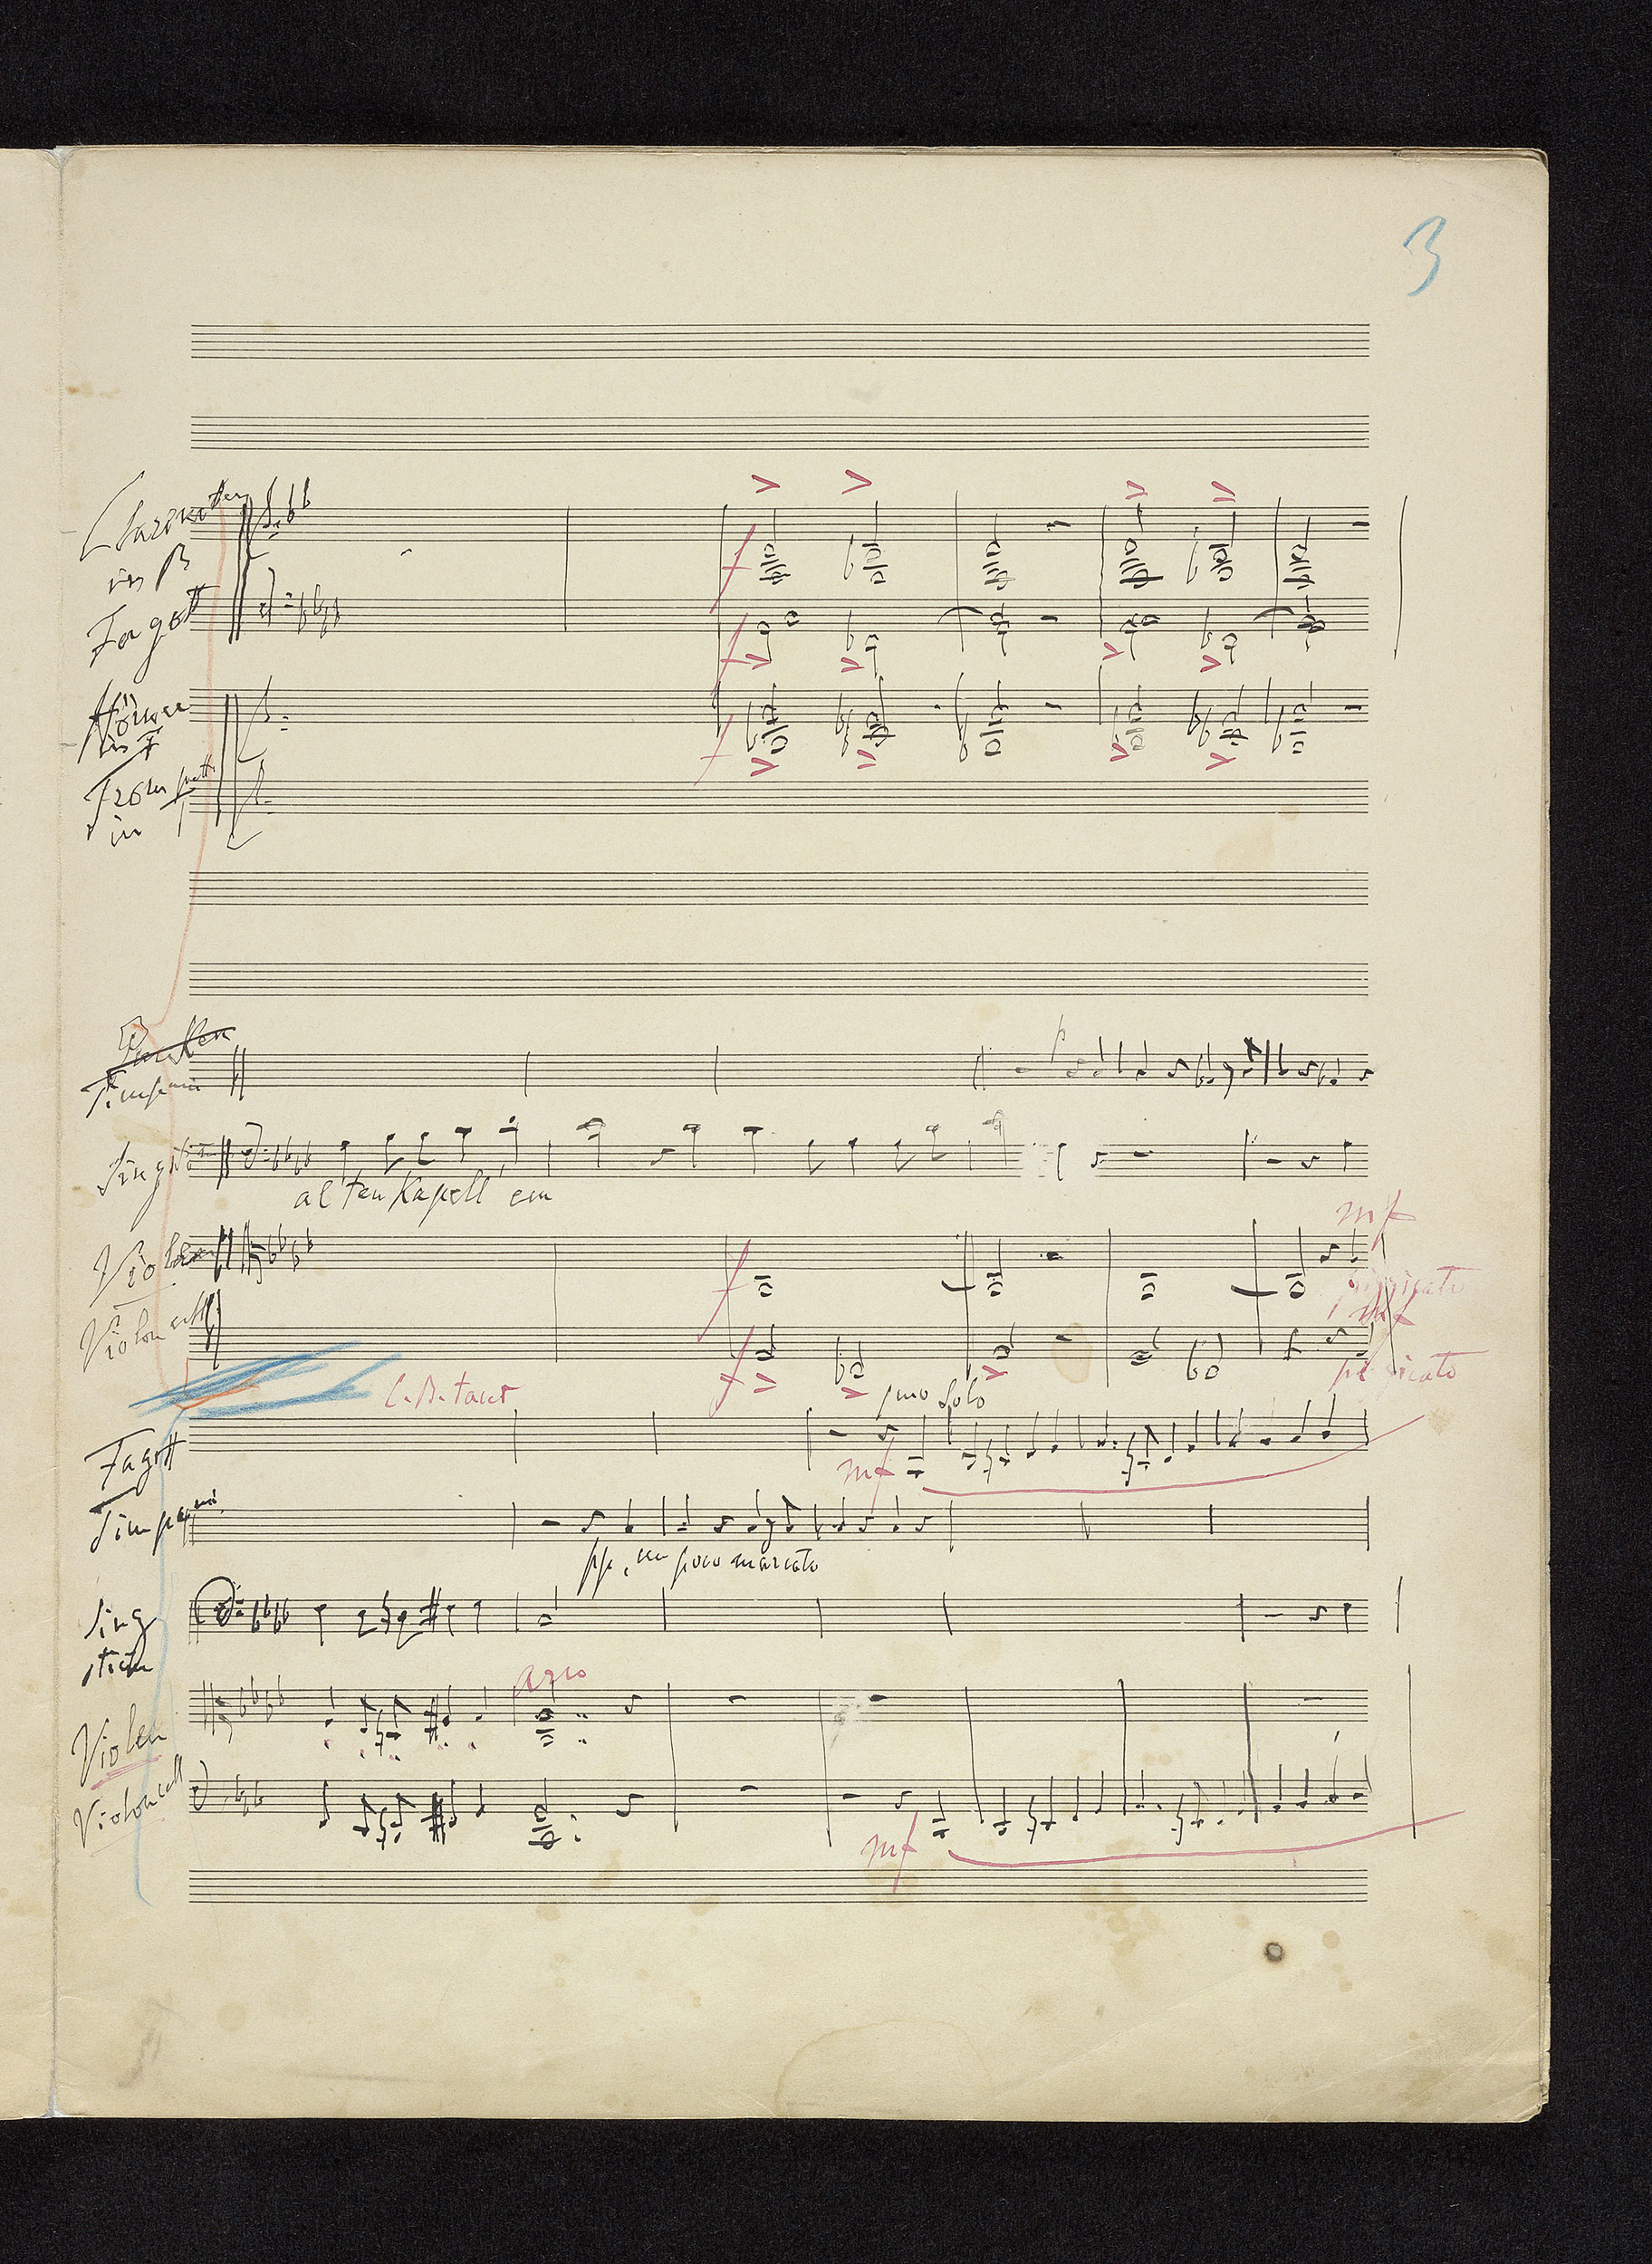 3
Clarinetten
in B
Fagott
f
f
Hörner
in F
f
Trompett
in
Pauken
Timpani
p
Singst
alten Kapell' ein
mf
Violen
f
pizzicato
Violoncell
f
mf
pizzicato
C. B. tacet
1mo Solo
Fagott
mf
Timpani
pp, un poco marcato
Sing
stim
arco
Violen
Violoncell
mf